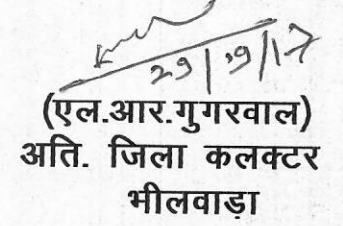 (एल.आर.गुगरवाल)
अति. जिला कलक्टर
भीलवाड़ा